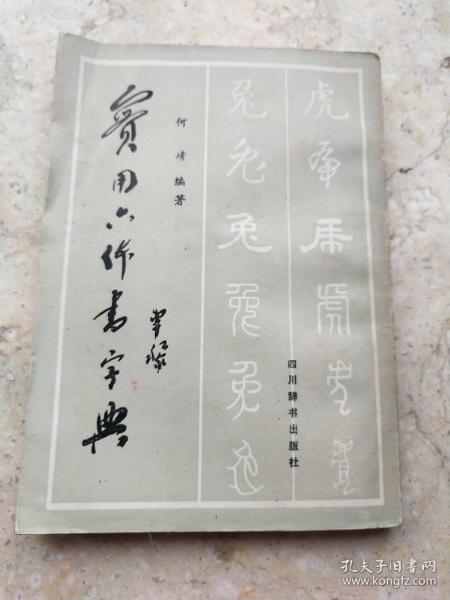 實用六体書字典
何靖编著
兔兔兔兔兔兔
虎虎虎虎虎虎
四川辞书出版社
孔夫子旧书网
www.kongfz.com